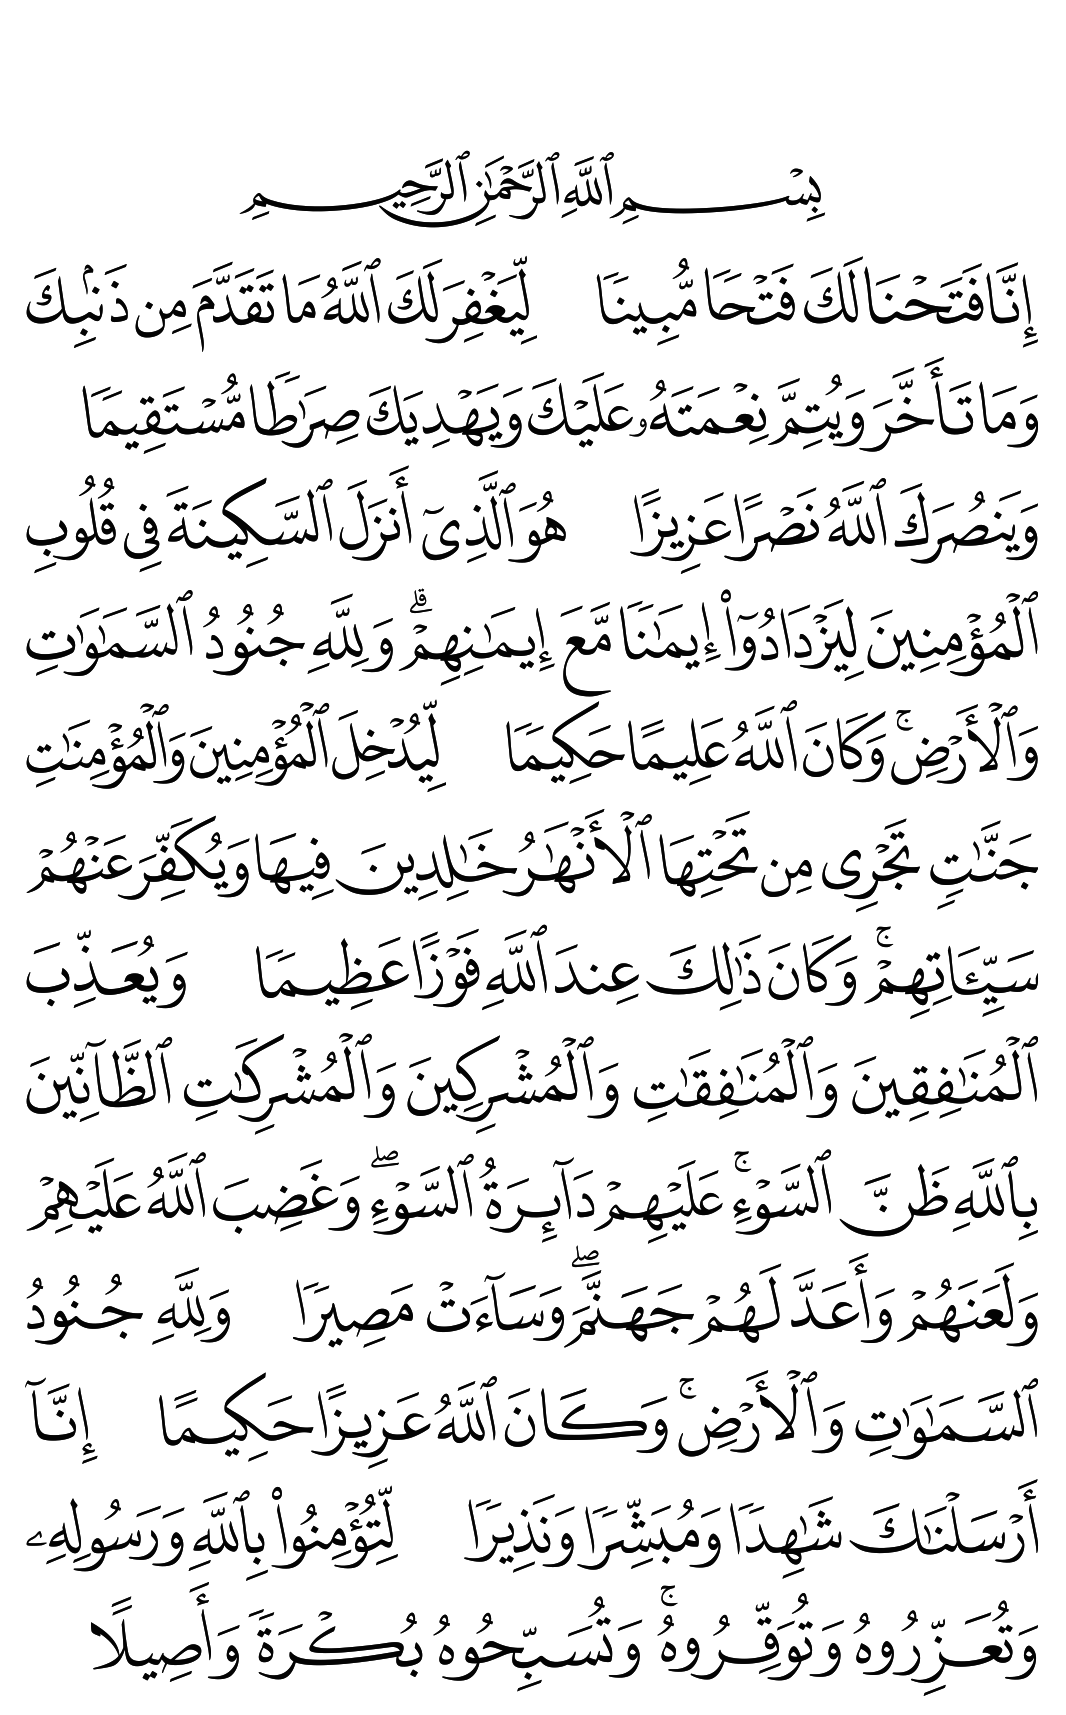 بِسْمِ ٱللَّهِ ٱلرَّحْمَٰنِ ٱلرَّحِيمِ
إِنَّا فَتَحْنَا لَكَ فَتْحًا مُّبِينًا لِّيَغْفِرَ لَكَ ٱللَّهُ مَا تَقَدَّمَ مِن ذَنۢبِكَ
وَمَا تَأَخَّرَ وَيُتِمَّ نِعْمَتَهُۥ عَلَيْكَ وَيَهْدِيَكَ صِرَٰطًا مُّسْتَقِيمًا
وَيَنصُرَكَ ٱللَّهُ نَصْرًا عَزِيزًا هُوَ ٱلَّذِىٓ أَنزَلَ ٱلسَّكِينَةَ فِى قُلُوبِ
ٱلْمُؤْمِنِينَ لِيَزْدَادُوٓا۟ إِيمَٰنًا مَّعَ إِيمَٰنِهِمْ ۗ وَلِلَّهِ جُنُودُ ٱلسَّمَٰوَٰتِ
وَٱلْأَرْضِ ۚ وَكَانَ ٱللَّهُ عَلِيمًا حَكِيمًا لِّيُدْخِلَ ٱلْمُؤْمِنِينَ وَٱلْمُؤْمِنَٰتِ
جَنَّٰتٍ تَجْرِى مِن تَحْتِهَا ٱلْأَنْهَٰرُ خَٰلِدِينَ فِيهَا وَيُكَفِّرَ عَنْهُمْ
سَيِّـَٔاتِهِمْ ۚ وَكَانَ ذَٰلِكَ عِندَ ٱللَّهِ فَوْزًا عَظِيمًا وَيُعَذِّبَ
ٱلْمُنَٰفِقِينَ وَٱلْمُنَٰفِقَٰتِ وَٱلْمُشْرِكِينَ وَٱلْمُشْرِكَٰتِ ٱلظَّآنِّينَ
بِٱللَّهِ ظَنَّ ٱلسَّوْءِ ۚ عَلَيْهِمْ دَآئِرَةُ ٱلسَّوْءِ ۖ وَغَضِبَ ٱللَّهُ عَلَيْهِمْ
وَلَعَنَهُمْ وَأَعَدَّ لَهُمْ جَهَنَّمَ ۖ وَسَآءَتْ مَصِيرًا وَلِلَّهِ جُنُودُ
ٱلسَّمَٰوَٰتِ وَٱلْأَرْضِ ۚ وَكَانَ ٱللَّهُ عَزِيزًا حَكِيمًا إِنَّآ
أَرْسَلْنَٰكَ شَٰهِدًا وَمُبَشِّرًا وَنَذِيرًا لِّتُؤْمِنُوا۟ بِٱللَّهِ وَرَسُولِهِۦ
وَتُعَزِّرُوهُ وَتُوَقِّرُوهُ ۚ وَتُسَبِّحُوهُ بُكْرَةً وَأَصِيلًا